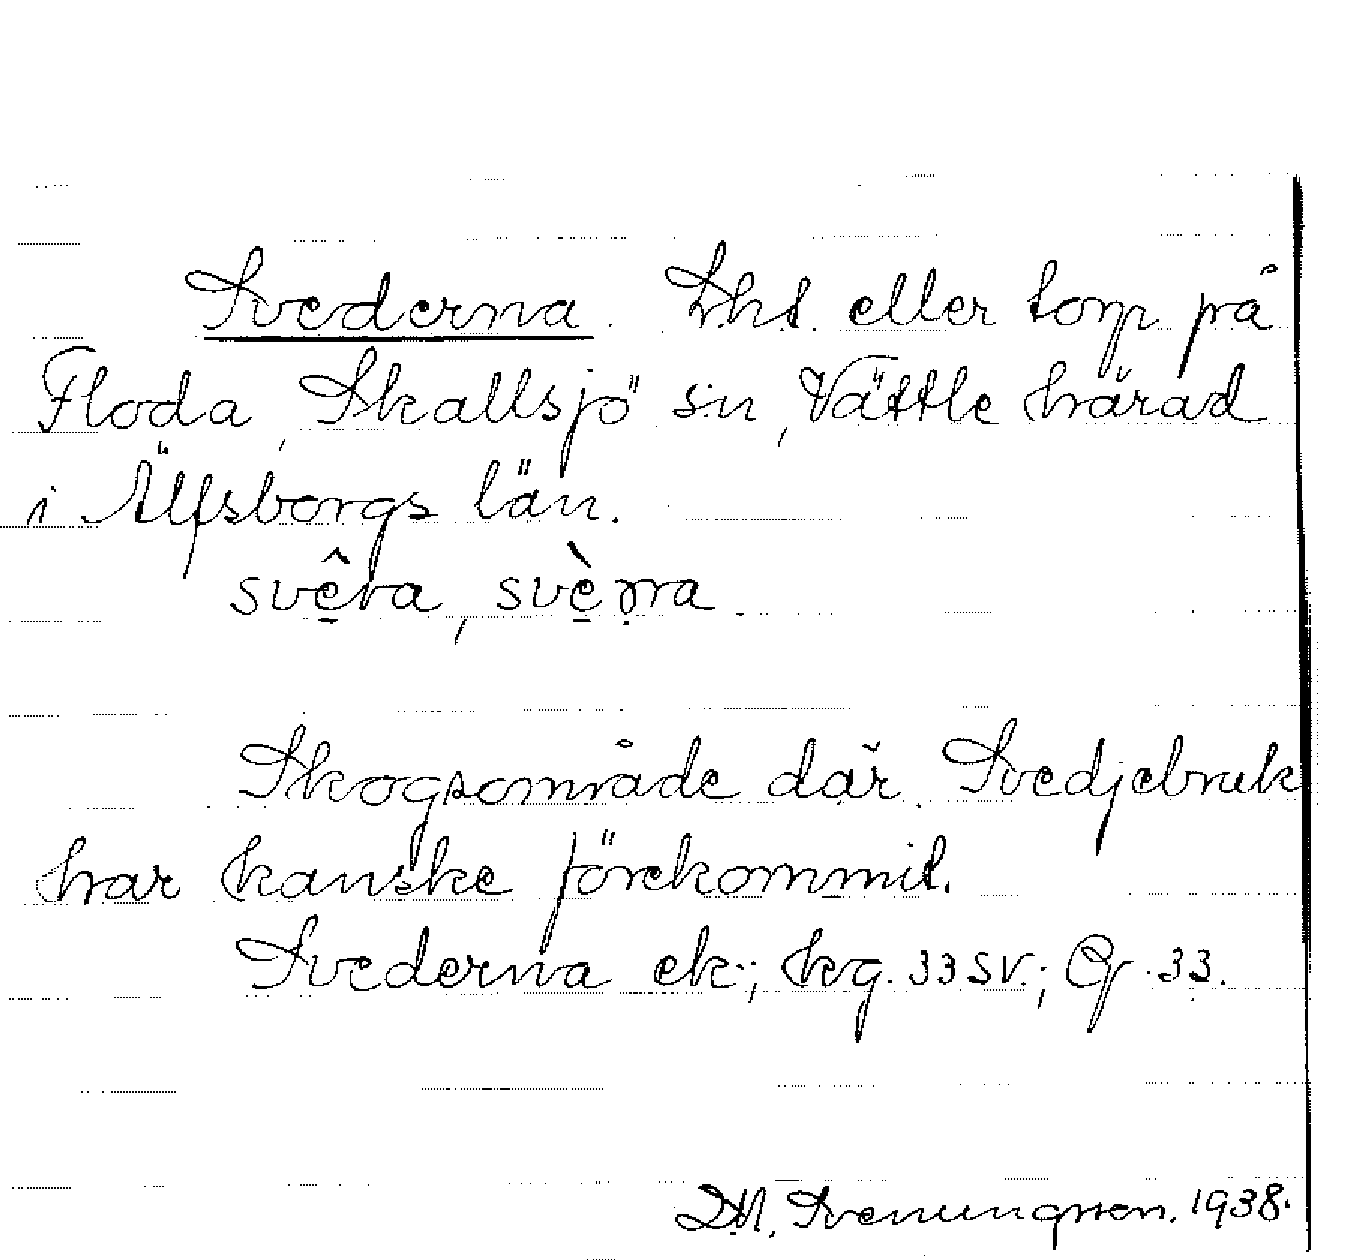 Svederna. Lht. eller torp på
Floda, Skallsjö sn, Vättle härad
i Älfsborgs län.
svêra, svèṇna.
Skogsområde där Svedjebruk
har kanske förekommit.
Svederna ek.; kg. 33 SV.; Gr. 33.
D.M. Svenungsson. 1938.